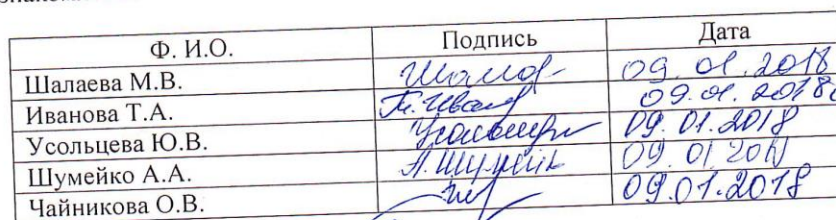 Ф. И.О. Подпись Дата
Шалаева М.В. 09.01.2018
Иванова Т.А. 09.01.2018г
Усольцева Ю.В. 09.01.2018
Шумейко А.А. А. Шумейк 09.01.2018
Чайникова О.В. 09.01.2018